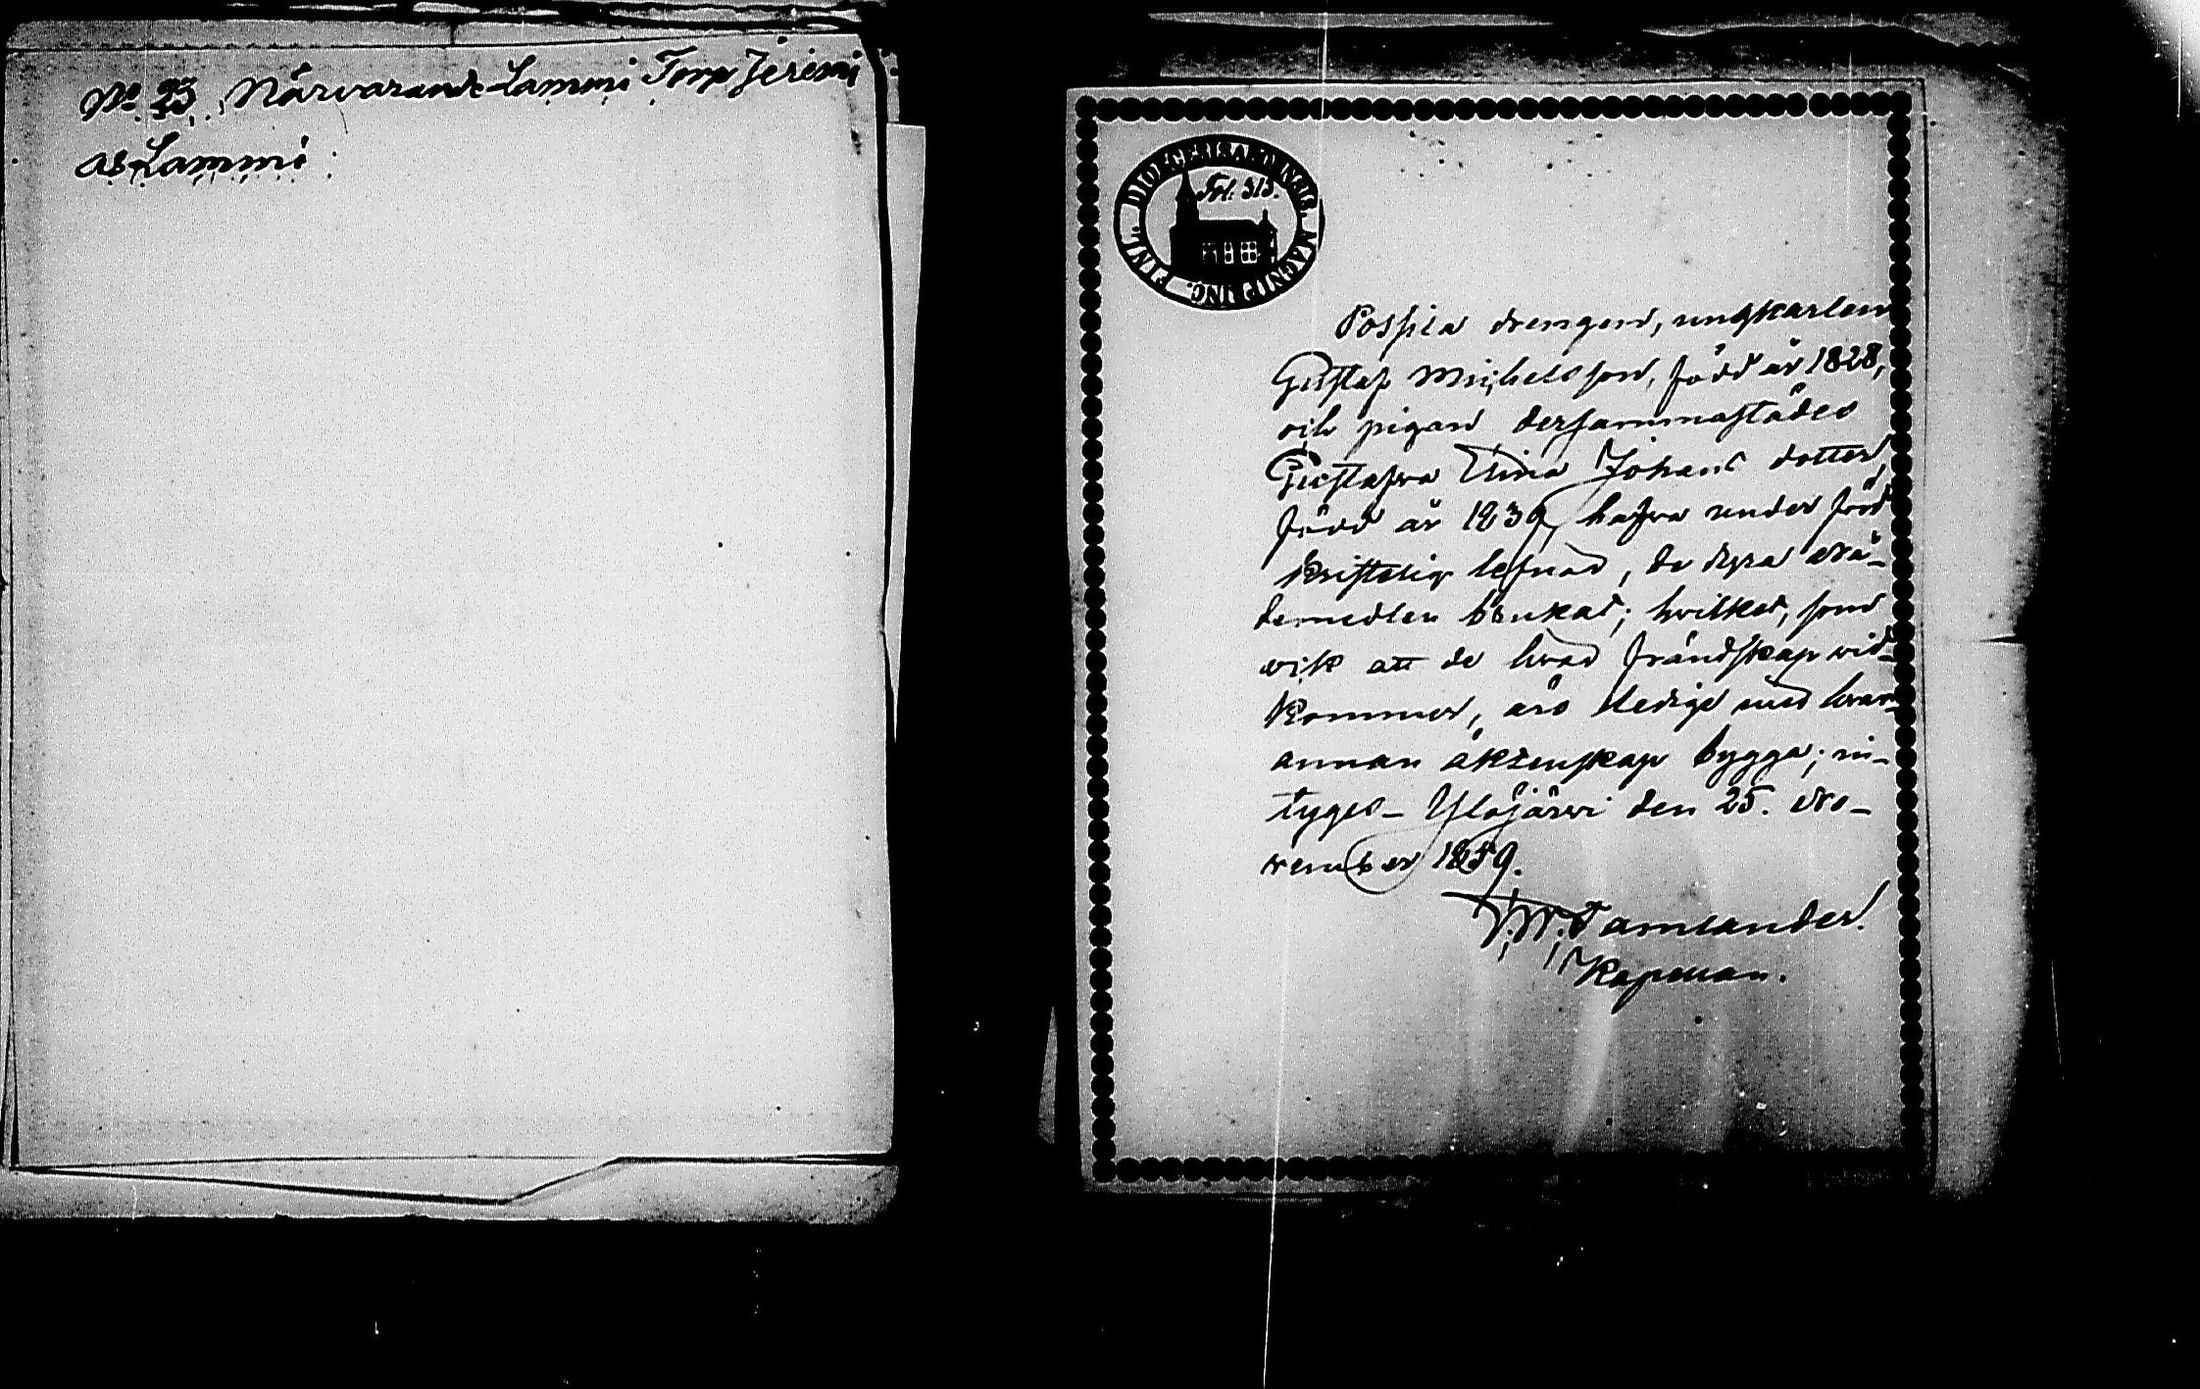 No 23. Närvarande Lammi Torp Jeremi
ab Lammi
DIOECESIS ABOENSIS. MAGNI PRINC. FINL.
Fol. 313.
Possila drengen, ungkarlen
Gustaf Michelsson, född år 1828,
och pigan dersammastädes
Gustafva Stina Johans dotter,
född år 1839, hafva under förd
kristelig lefnad, de dyra nå-
demedlen brukat; hvilket, som
ock att de hvad frändskap vid-
kommer, äro ledige med hvar-
annan äktenskap bygga; in-
tygas – Ylöjärvi den 25. No-
vember 1859.
Tamlander.
Kapellan.